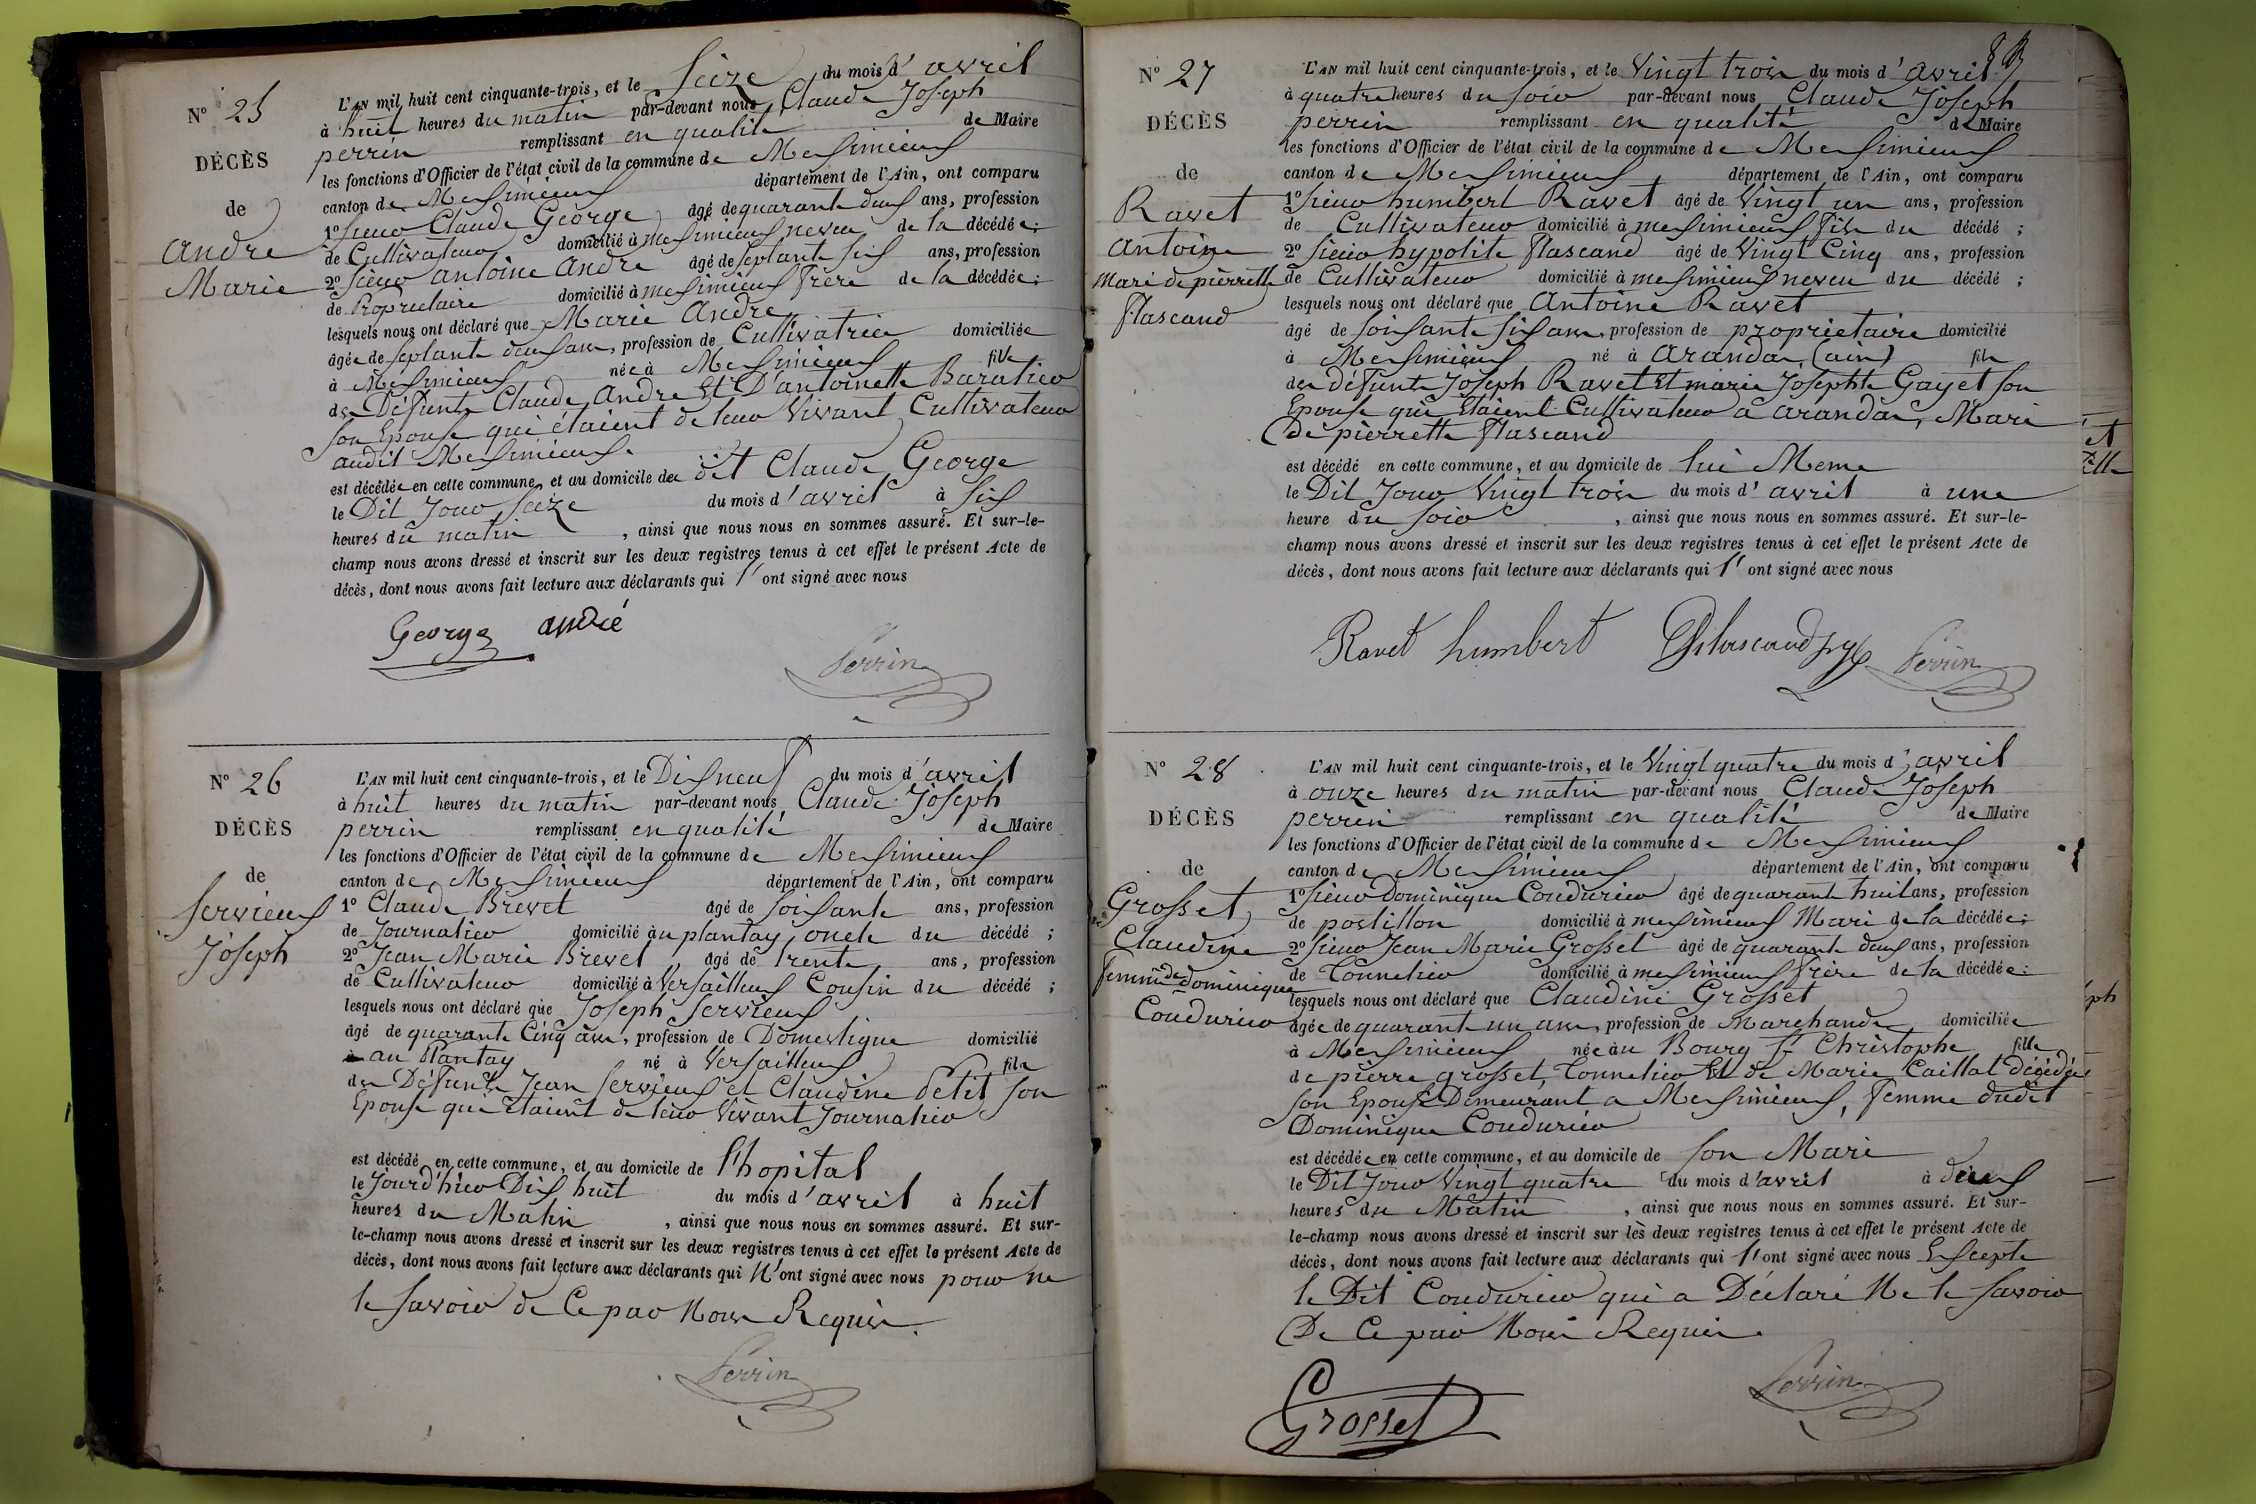 N° 25
DÉCÈS
de
andre
Marie
L'AN mil huit cent cinquante-trois, et le Seize du mois d'avril
à huit heures du matin par-devant nous Claude Joseph
perrin remplissant en qualité de Maire
les fonctions d'Officier de l'état civil de la commune de Meximieux
canton de Meximieux département de l'Ain, ont comparu
1° Sieur Claude George âgé de quarante deux ans, profession
de Cultivateur domicilié à meximieux neveu de la décédée;
2° Sieur antoine andre âgé de septante six ans, profession
de Propriétaire domicilié à meximieux frère de la décédée;
lesquels nous ont déclaré que Marie andre
âgée de septante deux ans, profession de Cultivatrice domiciliée
à Meximieux née à Meximieux fille
des Défunts Claude Andre Et D'antoinette Baratier
son Epouse qui étaient de leur Vivant Cultivateur
audit Meximieux.
est décédée en cette commune, et au domicile du dit Claude George
le Dit Jour Seize du mois d'avril à six
heures du matin, ainsi que nous nous en sommes assuré. Et sur-le-
champ nous avons dressé et inscrit sur les deux registres tenus à cet effet le présent Acte de
décès, dont nous avons fait lecture aux déclarants qui l'ont signé avec nous
George andré
Perrin
N° 26
DÉCÈS
de
Servieux
Joseph
L'AN mil huit cent cinquante-trois, et le Dixneuf du mois d'avril
à huit heures du matin par-devant nous Claude Joseph
perrin remplissant en qualité de Maire
les fonctions d'Officier de l'état civil de la commune de Meximieux
canton de Meximieux département de l'Ain, ont comparu
1° Claude Brevet âgé de soixante ans, profession
de Journalier domicilié au plantay, oncle du décédé;
2° Jean Marie Brevet âgé de trente ans, profession
de Cultivateur domicilié à Versailleux Cousin du décédé;
lesquels nous ont déclaré que Joseph Servieux
âgé de quarante Cinq ans, profession de Domestique domicilié
à au Plantay né à Versailleux fils
des Défunts Jean Servieux et Claudine Petit son
Epouse qui étaient de leur Vivant Journalier
est décédé en cette commune, et au domicile de l'hopital
le Jourd'hier Dix huit du mois d'avril à huit
heures du Matin, ainsi que nous nous en sommes assuré. Et sur-
le-champ nous avons dressé et inscrit sur les deux registres tenus à cet effet le présent Acte de
décès, dont nous avons fait lecture aux déclarants qui N'ont signé avec nous pour ne
le savoir de Ce par Nous Requis.
Perrin
N° 27
DÉCÈS
de
Ravet
Antoine
Mari de pierrette
Flascaud
L'AN mil huit cent cinquante-trois, et le Vingt trois du mois d'avril
à quatre heures du soir par-devant nous Claude Joseph
perrin remplissant en qualité de Maire
les fonctions d'Officier de l'état civil de la commune de Meximieux
canton de Meximieux département de l'Ain, ont comparu
1° Sieur humbert Ravet âgé de Vingt un ans, profession
de Cultivateur domicilié à meximieux Fils du décédé;
2° Sieur hypolite Flascaud âgé de Vingt Cinq ans, profession
de Cultivateur domicilié à meximieux neveu du décédé;
lesquels nous ont déclaré que Antoine Ravet
âgé de soixante six ans, profession de proprietaire domicilié
à Meximieux né à arandas (ain) fils
des défunts Joseph Ravet Et marie Josephte Gayet son
Epouse qui Etaient Cultivateur à arandas, Mari
de pierrette Flascaud
est décédé en cette commune, et au domicile de lui Meme
le Dit Jour Vingt trois du mois d'avril à une
heure du soir, ainsi que nous nous en sommes assuré. Et sur-le-
champ nous avons dressé et inscrit sur les deux registres tenus à cet effet le présent Acte de
décès, dont nous avons fait lecture aux déclarants qui l'ont signé avec nous
Ravet humbert
Perrin
N° 28
DÉCÈS
de
Grosset
Claudine
Femme de dominique
Coudurier
L'AN mil huit cent cinquante-trois, et le Vingt quatre du mois d'avril
à onze heures du matin par-devant nous Claude Joseph
perrin remplissant en qualité de Maire
les fonctions d'Officier de l'état civil de la commune de Meximieux
canton de Meximieux département de l'Ain, ont comparu
1° Sieur Dominique Coudurier âgé de quarante huit ans, profession
de postillon domicilié à meximieux Mari de la décédée;
2° Sieur Jean Marie Grosset âgé de quarante deux ans, profession
de Tonnelier domicilié à meximieux frère de la décédée;
lesquels nous ont déclaré que Claudine Grosset
âgée de quarante un ans, profession de Marchande domiciliée
à Meximieux née au Bourg St Christophe fille
de pierre grosset, Tonnelier Et de Marie Caillat décédée
son Epouse Demeurant a Meximieux, Femme dudit
Dominique Coudurier
est décédée en cette commune, et au domicile de son Mari
le Dit Jour Vingt quatre du mois d'avril à deux
heures du Matin, ainsi que nous nous en sommes assuré. Et sur-
le-champ nous avons dressé et inscrit sur les deux registres tenus à cet effet le présent Acte de
décès, dont nous avons fait lecture aux déclarants qui l'ont signé avec nous Excepté
le Dit Coudurier qui a Déclaré Ne le savoir
De Ce par Nous Requis.
Grosset
Perrin